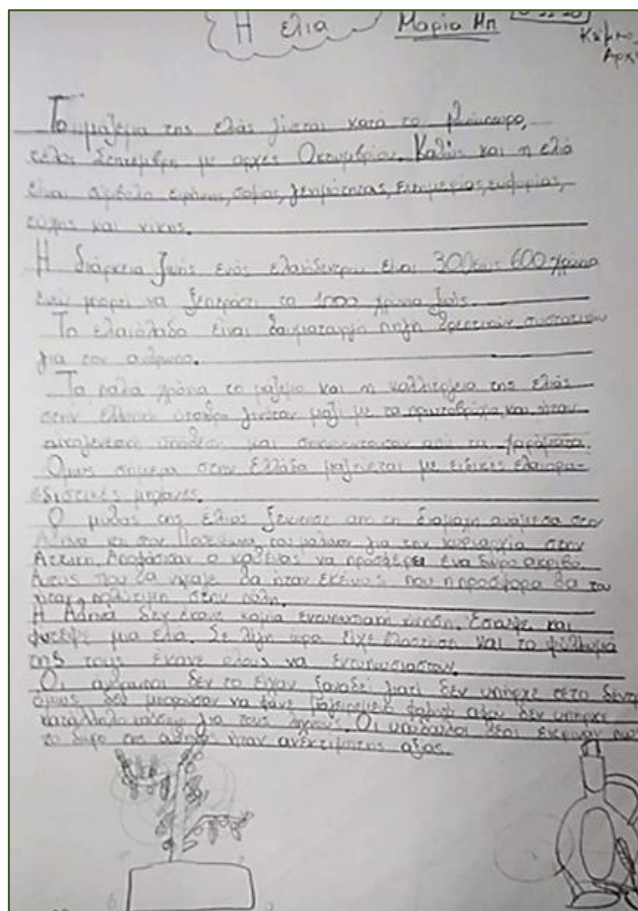 Η ελιά Μαρία Μπ
Το μάζεμα της ελιάς γίνεται κατά το φθινόπωρο,
τέλος Σεπτεμβρη με αρχες Οκτωμβρίου. Καθώς και η ελιά
είναι σύμβολο ειρήνης, σοφίας, γονιμότητας, ευημερίας, ευφορίας,
τύχης και νικης.
Η διάρκεια ζωής ενός ελαιόδεντρου είναι 300 έως 600 χρόνια
ενώ μπορεί να ξεπεράσει τα 1000 χρόνια ζωής.
Το ελαιόλαδο είναι θαυματουργή πηγή θρεπτικών συστατικών
για τον ανθρωπο.
Τα παλια χρόνια το μάζεμα και η καλλιέργεια της ελιάς
στην ελληνικη υπαιθρο γινόταν μαζί με τα πρωτοβρόχια, και ήταν
οικογενειακή υπόθεση και από τα χαράματα.
Ομως σήμερα στην Ελλάδα μαζεύεται με ειδικες ελαιορα-
βδιστικές μηχανές.
Ο μυθος της ελιας ξεκινησε απο τη διαμαχη αναμεσα στην
Αθηνα και στον Ποσειδωνα, που μάλωναν για την κυριαρχία στην
Αττικη. Αποφάσισαν ο καθένας να προσφέρει ένα δώρο ακριβό.
Αυτος που θα νικαγε θα ήταν εκείνος που η προσφορα θα του
ηταν πολύτιμη στην πόλη.
Η Αθηνά δεν έκανε καμία εντυπωσιακή κινηση. Εσκυψε και
φυτεψε μια ελιά. Σε λίγη ώρα είχε βλαστησει και το φύλλωμα
της τους έκανε ολους να εντυπωσιαστουν.
Οι ανθρωποι δεν το ειχαν ξαναδεί γιατί δεν υπήρχε τετο δεντρο
όμως δεν μπορουσαν να φάνε μαγειρεμένο φαγητό αφου δεν υπηρχε
καταλληλο για τους Οι υπόλοιποι θεοί εκριναν πως
το δωρο της αθηνας ήταν ανεκτιμητης αξιας.